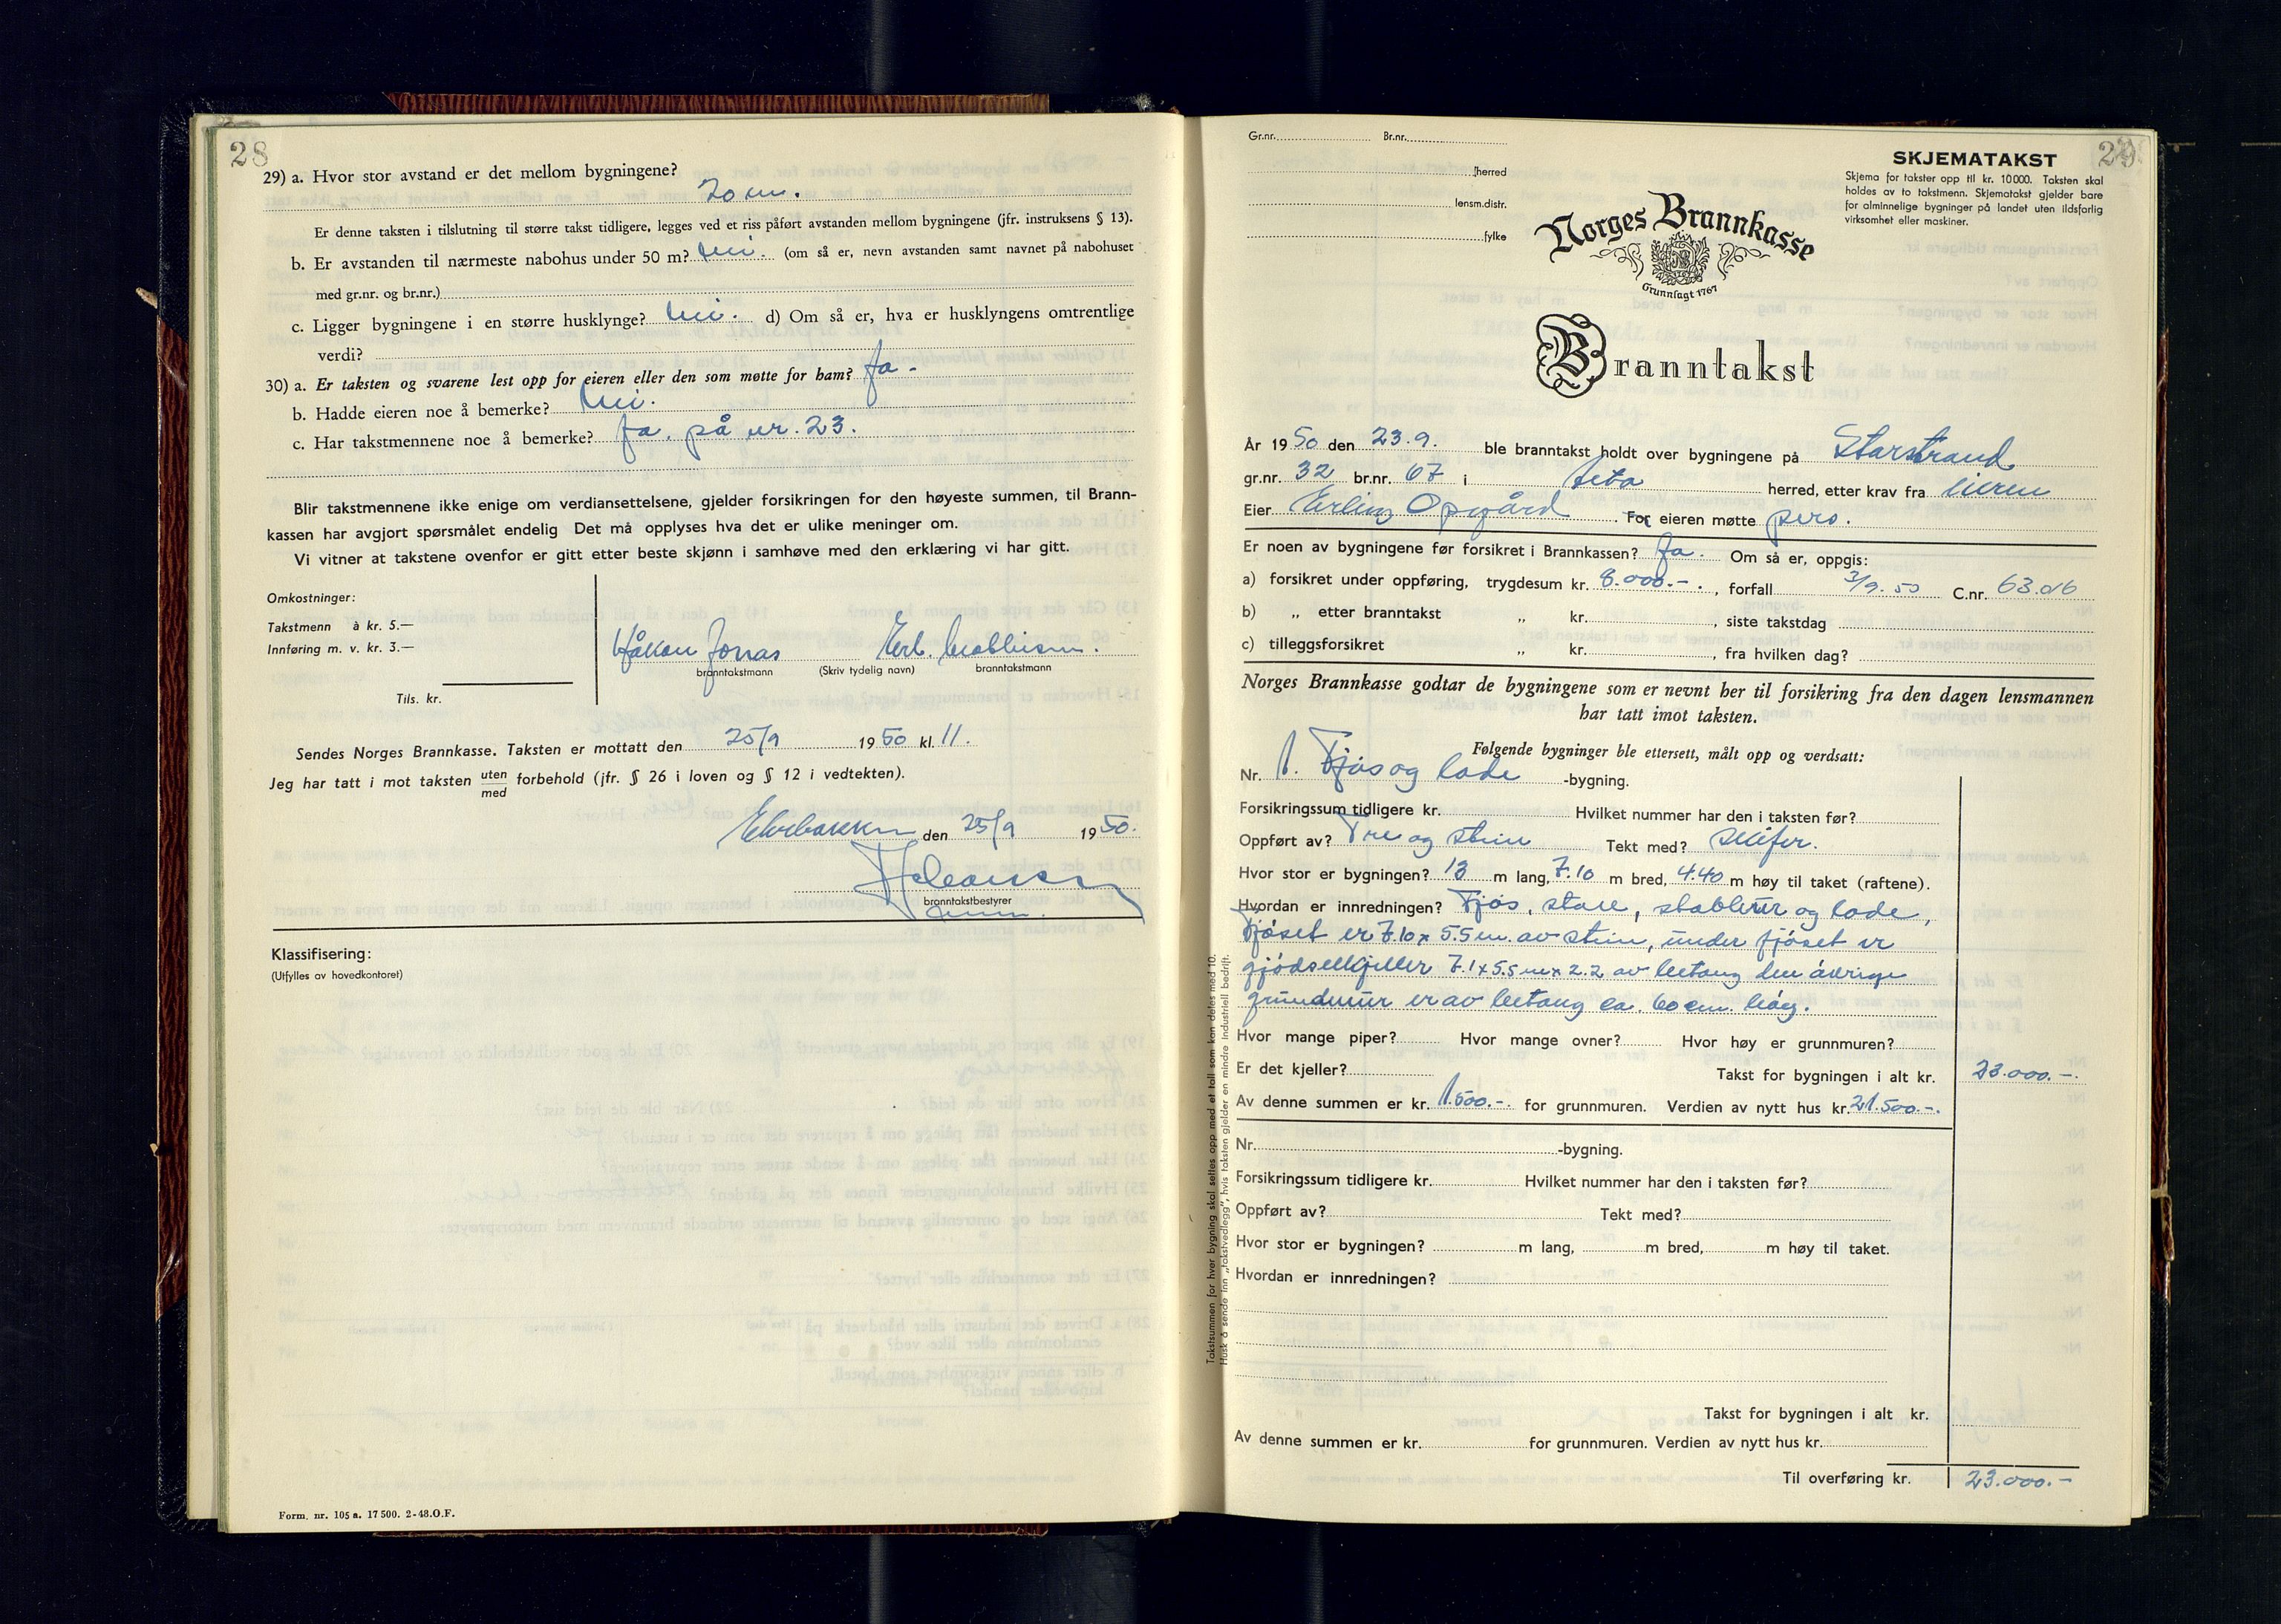 28
29) a. Hvor stor avstand er det mellom bygningene?
20 m.
Er denne taksten i tilslutning til større takst tidligere, legges ved et riss påført avstanden mellom bygningene (jfr. instruksens § 13).
b. Er avstanden til nærmeste nabohus under 50 m? Nei. (om så er, nevn avstanden samt navnet på nabohuset
med gr.nr. og br.nr.)
c. Ligger bygningene i en større husklynge? Nei. d) Om så er, hva er husklyngens omtrentlige
verdi?
30) a. Er taksten og svarene lest opp for eieren eller den som møtte for ham? Ja.
b. Hadde eieren noe å bemerke? Nei.
c. Har takstmennene noe å bemerke? Ja, på nr. 23.
Blir takstmennene ikke enige om verdiansettelsene, gjelder forsikringen for den høyeste summen, til Brann-
kassen har avgjort spørsmålet endelig Det må opplyses hva det er ulike meninger om.
Vi vitner at takstene ovenfor er gitt etter beste skjønn i samhøve med den erklæring vi har gitt.
Omkostninger:
Takstmenn à kr. 5.—
Innføring m. v. kr. 3.—
Tils. kr.
Håkon Jonas
branntakstmann (Skriv tydelig navn) branntakstmann
Sendes Norges Brannkasse. Taksten er mottatt den 25/9 1950 kl. 11.
Jeg har tatt i mot taksten uten med forbehold (jfr. § 26 i loven og § 12 i vedtekten).
Elvebakken den 25/9 1950.
branntakstbestyrer
Klassifisering:
(Utfylles av hovedkontoret)
Form. nr. 105 a. 17 500. 2-48.O.F.
29
Gr.nr. Br.nr.
herred
lensm.distr.
fylke
SKJEMATAKST
Skjema for takster opp til kr. 10 000. Taksten skal
holdes av to takstmenn. Skjematakst gjelder bare
for alminnelige bygninger på landet uten ildsfarlig
virksomhet eller maskiner.
Norges Brannkasse
Grunnlagt 1767
Branntakst
År 1950 den 23.9. ble branntakst holdt over bygningene på Storstrand
gr.nr. 32 br.nr. 67 i herred, etter krav fra eieren
Eier Erling Opgård For eieren møtte pers.
Er noen av bygningene før forsikret i Brannkassen? Ja. Om så er, oppgis:
a) forsikret under oppføring, trygdesum kr. 8.000.-., forfall 3/9.50 C.nr. 63.016
b) „ etter branntakst „ kr. , siste takstdag
c) tilleggsforsikret „ kr. , fra hvilken dag?
Norges Brannkasse godtar de bygningene som er nevnt her til forsikring fra den dagen lensmannen
har tatt imot taksten.
Følgende bygninger ble ettersett, målt opp og verdsatt:
Nr. 1. Fjøs og lade -bygning.
Forsikringssum tidligere kr. Hvilket nummer har den i taksten før?
Oppført av? Tre og stein Tekt med? Skifer.
Hvor stor er bygningen? 13 m lang, 7.10 m bred, 4.40 m høy til taket (raftene).
Hvordan er innredningen? Fjøs, stall, og lade,
Fjøset er 7.10 x 5.5 m. av stein, under fjøset er
gjødselkjeller 7.1 x 5.5 m x 2.2 av betong den øvrige
grunnmur er av betong ca. 60 cm. høg.
Hvor mange piper? Hvor mange ovner? Hvor høy er grunnmuren?
Er det kjeller? Takst for bygningen i alt kr. 23.000.-.
Av denne summen er kr. 1.500.-. for grunnmuren. Verdien av nytt hus kr. 21.500.-.
Nr. -bygning.
Forsikringssum tidligere kr. Hvilket nummer har den i taksten før?
Oppført av? Tekt med?
Hvor stor er bygningen? m lang, m bred, m høy til taket.
Hvordan er innredningen?
Takst for bygningen i alt kr.
Av denne summen er kr. for grunnmuren. Verdien av nytt hus kr.
Til overføring kr. 23.000.-
Takstsummen for hver bygning skal settes opp med et tall som kan deles med 10.
Husk å sende inn „takstvedlegg", hvis taksten gjelder en mindre industriell bedrift.